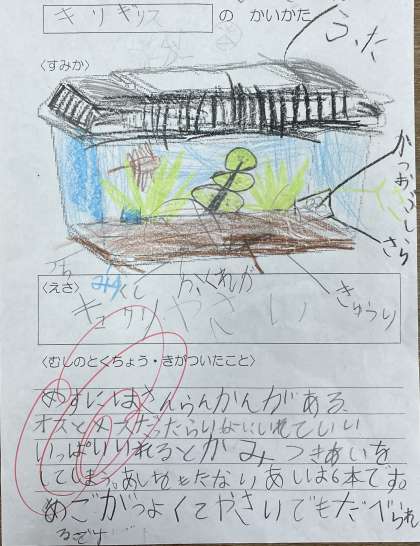 キリギリス の かいかた
ふた
〈すみか〉
かつおぶし
さら
かくれが
きゅうり
〈えさ〉
キュウリ やさい
〈むしのとくちょう・きがついたこと〉
めすにはさんらんかんがある、
オスとメスだったら
いっぱいいれるとかみつきあいを
してしまう。あしは6本です。
あごがつよくてやさいでもたべられ
るぞ